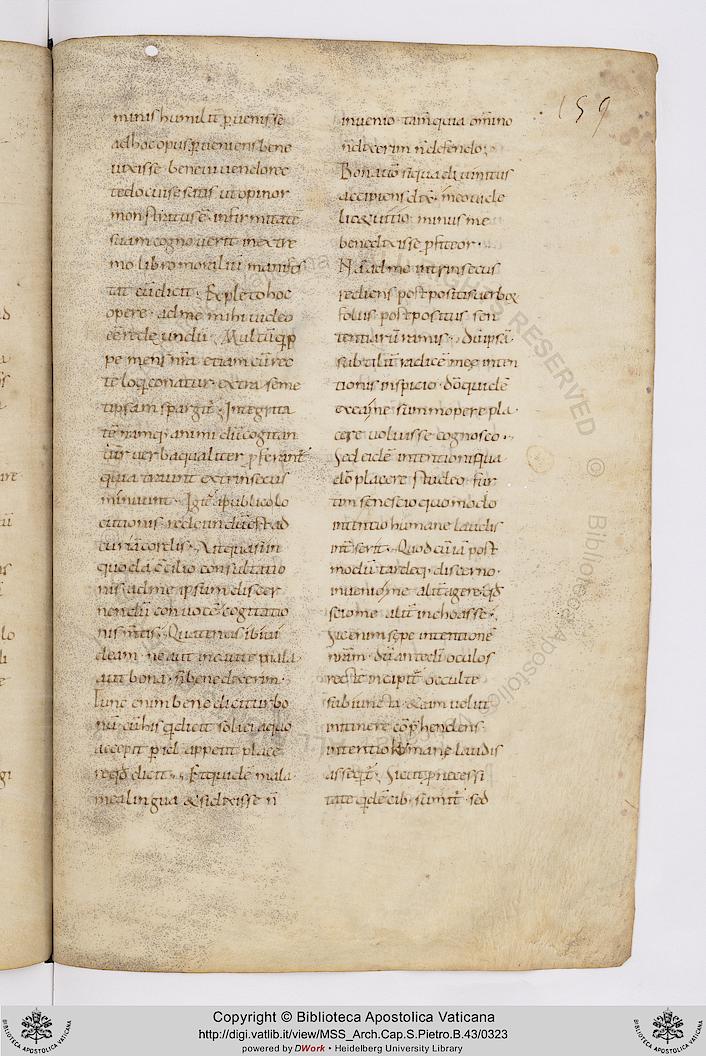 159
minus humilit puenisse
ad hoc opus pueniens bene
uixisse· bene uiuendo rec
te docuisse satis ut opinor
monstratus ē· infirmitate
suam cognouerit in extre
mo libro moraliū manifes
tat cū dicit· Expleto hoc
opere· ad me mihi uideo
eē redeundū· Multū q̄p
pe mens nr̄a etiam cū rec
te loqui conatur· extra seme
tipsam spargit̄· Integrita
tē namq; animi dū cogitan
tur uerba qualiter pferant̄·
quia trauint extrinsecus
minuunt· Igit̄ a publico lo
cutionis· redeundū est ad
curiā cordis· Ut quasi in
quodā c̄cilio consultatio
nis ad me ipsum discer
nendū conuocē cogitatio
nis mtis· Quatinus ibi ui
deam· ne aut incaute mala·
aut bona· n̄ bene dixerim·
Tunc enim bene dicitur bo
nū cū his q̄ dicit soli ei a quo
accepit p id appetit place
re qđ dicit· Et quidē mala
mea lingua & si dixisse n̄
inuenio· tam̄ quia om̄ino
n̄ dixerim n̄ defendo·
Bona uō si qua diuinitus
accipiens dixi· meo uide
lic& uitio minus me
bene dixisse pfiteor·
Nā ad me intrinsecus
rediens postpositis uerbis
foliis postpositis sen
tentiarū ramis· dū ipsā
subtilit̄ radicē meę inten
tionis inspicio· dō quidē
ex ea me summopere pla
cere uoluisse cognosco·
Sed eidē intentioni qua
dō placere studeo· fur
tim se nescio quomodo
intentio humanę laudis
int̄serit· Quod cū iā post
modū tardeq; discerno·
inuenio me alit̄ agere qđ
scio me alit̄ inchoasse·
Sic enim sępe intentionē
nr̄am· dū ante dī oculos
recte incipit̄ occulte
subiuncta & eam uelut
in itinere cōp̄hendens·
intentio humanę laudis
asseqt̄· Sicut p necessi
tate q̄dē cib· sumit̄· sed
Copyright © Biblioteca Apostolica Vaticana
http://digi.vatlib.it/view/MSS_Arch.Cap.S.Pietro.B.43/0323
powered by DWork • Heidelberg University Library